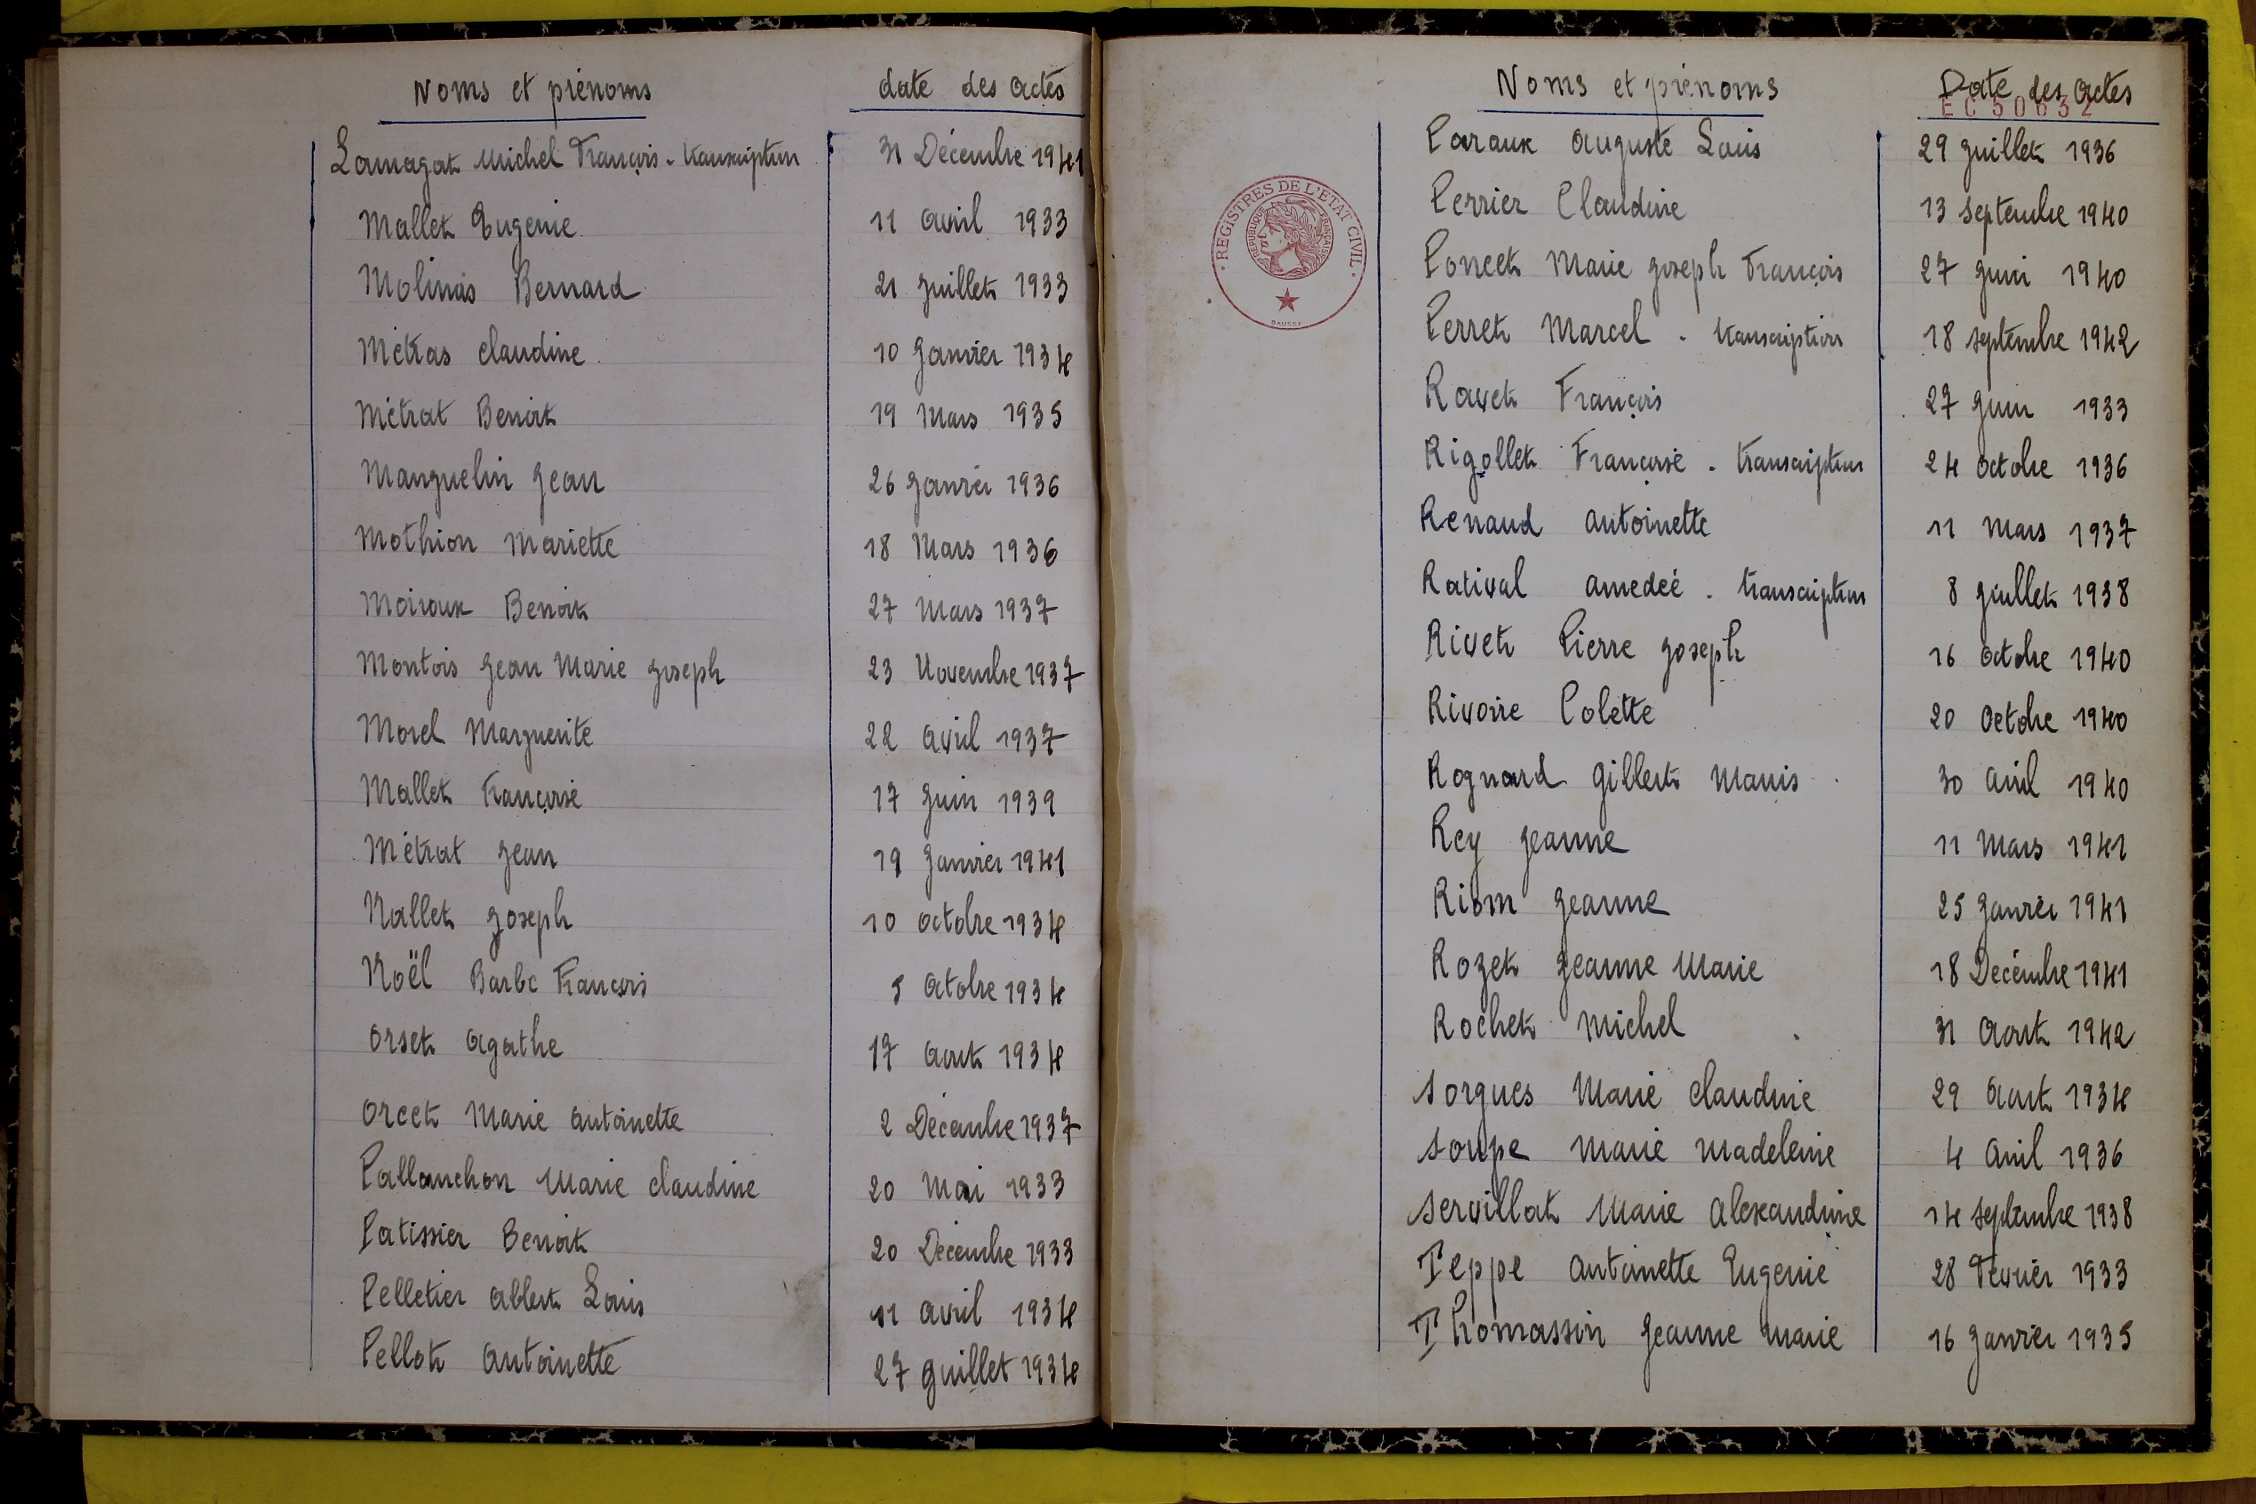 Noms et prénoms date des actes
Lamagat Michel François - transcription 31 Décembre 1941
Mallet Eugenie 11 avril 1933
Molinas Bernard 21 Juillet 1933
Métras Claudine 10 Janvier 1934
Métrat Benoit 19 Mars 1935
Manguelin Jean 26 Janvier 1936
Mothion Mariette 18 Mars 1936
Moiroux Benoit 27 Mars 1937
Montois Jean Marie Joseph 23 Novembre 1937
Morel Marguerite 22 avril 1937
Mallet Françoise 17 Juin 1939
Métrat Jean 19 Janvier 1941
Nallet Joseph 10 octobre 1934
Noël Barbe François 5 octobre 1934
Orset Agathe 17 Aout 1934
Orcet Marie Antoinette 2 Décembre 1937
Pallanchon Marie Claudine 20 Mai 1933
Patissier Benoit 20 Décembre 1933
Pelletier Albert Louis 11 avril 1934
Pellot Antoinette 27 Juillet 1934
Noms et prénoms Date des actes
EC50632
REGISTRES DE L'ETAT CIVIL
REPUBLIQUE FRANÇAISE
Paraux Auguste Louis 29 Juillet 1936
Perrier Claudine 13 Septembre 1940
Poncet Marie Joseph François 27 Juin 1940
Perret Marcel - transcription 18 Septembre 1942
Ravet François 27 Juin 1933
Rigollet Françoise - transcription 24 octobre 1936
Renaud Antoinette 11 Mars 1937
Ratival Amedeé - transcription 8 Juillet 1938
Rivet Pierre Joseph 16 octobre 1940
Rivoire Colette 20 octobre 1940
Rognard Gilbert Maris 30 avril 1940
Rey Jeanne 11 Mars 1941
Riom Jeanne 25 Janvier 1941
Rozet Jeanne Marie 18 Decémbre 1941
Rochet Michel 31 Aout 1942
Sorgues Marie Claudine 29 Aout 1934
Soupe Marie Madeleine 4 Avril 1936
Servillat Marie Alexandrine 14 Septembre 1938
Teppe Antoinette Eugenie 28 Fevrier 1933
Thomassin Jeanne Marie 16 Janvier 1935